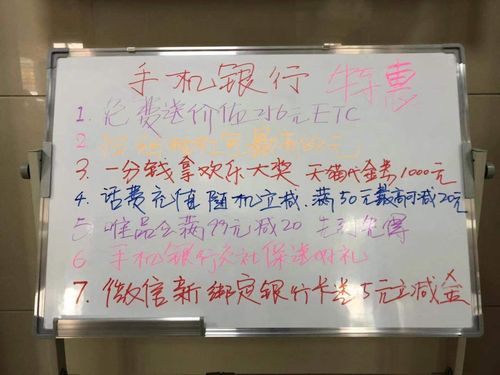 手机银行 特惠
1. 免费送价值256元ETC
2
3. 一分钱拿欢乐大奖 天猫代金券1000元
4. 话费充值随机立减.满50元最高可减20元
5 唯品会满99元减20 先到先得
6 手机银行交社保送好礼
7. 微信新绑定银行卡送5元立减金